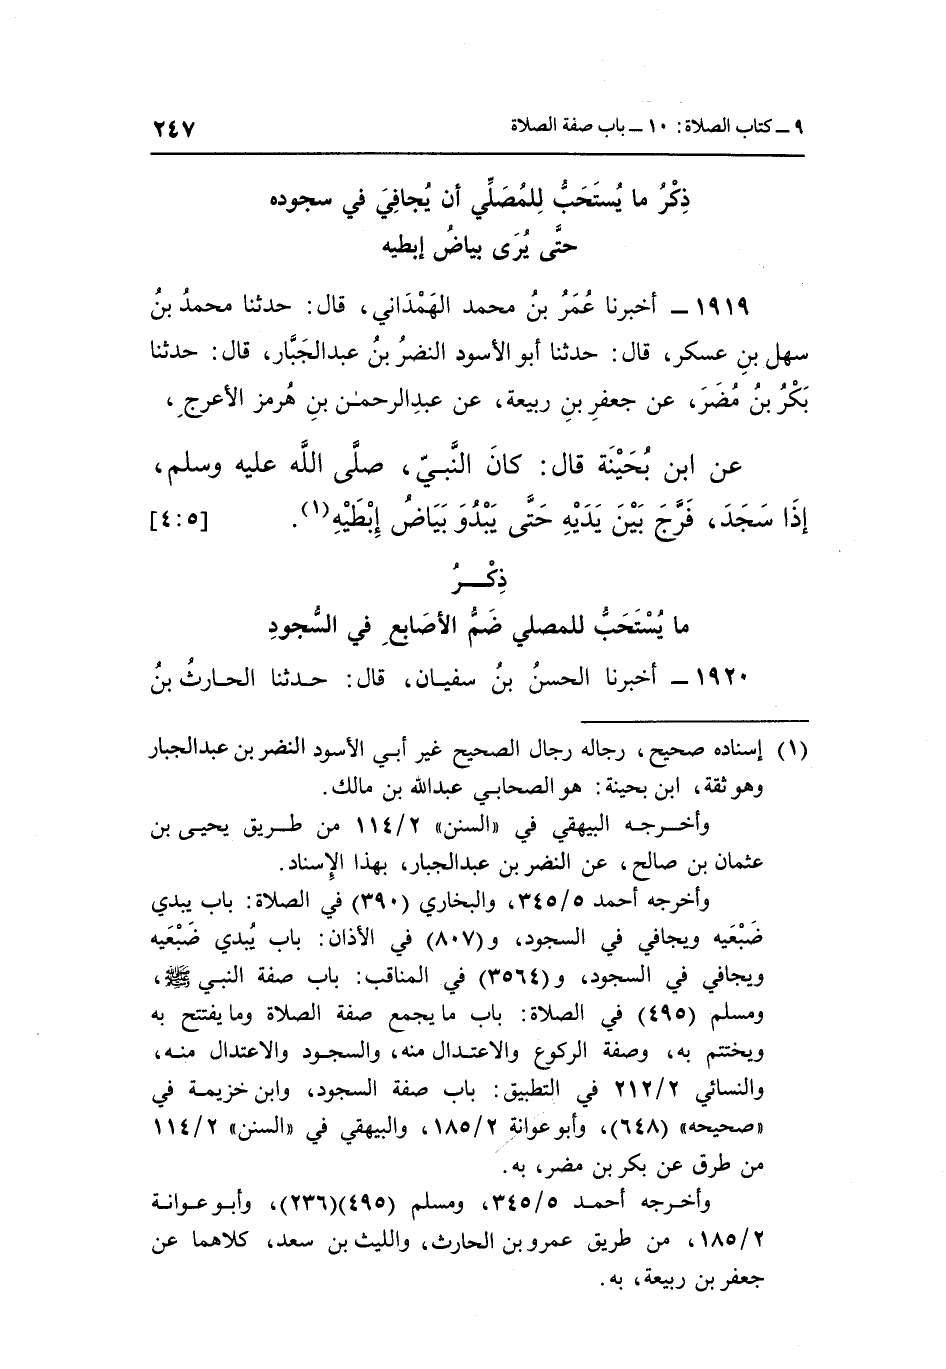 ٩ ــ كتاب الصلاة: ١٠ ــ باب صفة الصلاة ٢٤٧
ذِكْرُ ما يُستَحَبُّ لِلمُصَلِّي أن يُجافِيَ في سجوده
حتَّى يُرَى بياضُ إبطيه
١٩١٩ ــ أخبرنا عُمَرُ بنُ محمد الهَمْدَاني، قال: حدثنا محمدُ بنُ
سهل بنِ عسكر، قال: حدثنا أبو الأسود النضرُ بنُ عبدالجَبَّار، قال: حدثنا
بَكْرُ بنُ مُضَرَ، عن جعفرِ بنِ ربيعة، عن عبدِالرحمٰن بنِ هُرمز الأعرجِ،
عن ابن بُحَيْنَة قال: كانَ النَّبيّ، صلَّى اللَّه عليه وسلم،
إذَا سَجَدَ، فَرَّجَ بَيْنَ يَدَيْهِ حَتَّى يَبْدُوَ بَيَاضُ إِبْطَيْهِ(١). [٤:٥]
ذِكْــرُ
ما يُسْتَحَبُّ للمصلي ضَمُّ الأصَابعِ في السُّجودِ
١٩٢٠ ــ أخبرنا الحسنُ بنُ سفيـان، قال: حـدثنا الحـارثُ بنُ
(١) إسناده صحيح، رجاله رجال الصحيح غير أبي الأسود النضر بن عبدالجبار
وهو ثقة، ابن بحينة: هو الصحابي عبدالله بن مالك.
وأخـرجـه البيهقي في «السنن» ١١٤/٢ من طـريق يحيـى بن
عثمان بن صالح، عن النضر بن عبدالجبار، بهذا الإسناد.
وأخرجه أحمد ٣٤٥/٥، والبخاري (٣٩٠) في الصلاة: باب يبدي
ضَبْعَيه ويجافي في السجود، و(٨٠٧) في الأذان: باب يُبدي ضَبْعَيه
ويجافي في السجود، و(٣٥٦٤) في المناقب: باب صفة النبي ﷺ،
ومسلم (٤٩٥) في الصلاة: باب ما يجمع صفة الصلاة وما يفتتح به
ويختتم به، وصفة الركوع والاعتـدال منه، والسجـود والاعتدال منـه،
والنسائي ٢١٢/٢ في التطبيق: باب صفة السجود، وابن خزيمـة في
«صحيحه» (٦٤٨)، وأبو عوانة ١٨٥/٢، والبيهقي في «السنن» ١١٤/٢
من طرق عن بكر بن مضر، به.
وأخـرجه أحمـد ٣٤٥/٥، ومسلم (٤٩٥)(٢٣٦)، وأبـو عـوانـة
١٨٥/٢، من طريق عمرو بن الحارث، والليث بن سعد، كلاهما عن
جعفر بن ربيعة، به.